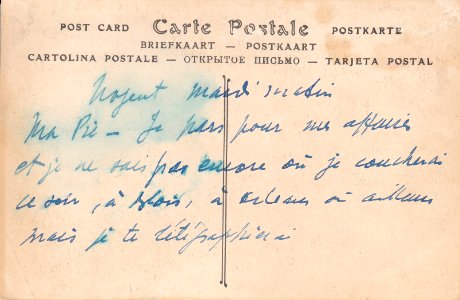 POST CARD Carte Postale POSTKARTE
BRIEFKAART — POSTKAART
CARTOLINA POSTALE — ОТКРЫТОЕ ПИСЬМО — TARJETA POSTAL
Nogent mardi matin
Ma — Je pars pour mes affaires
et je ne sais pas encore où je coucherai
ce soir, à Blois, à Orléans ou ailleurs
mais je te télégraphierai